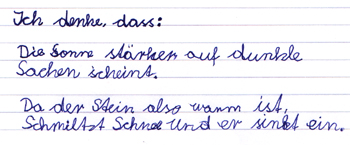 Ich denke, dass:
Die Sonne stärker auf dunkle
Sachen scheint.
Da der Stein also warm ist,
Schmiltzt Schnee und er sinkt ein.